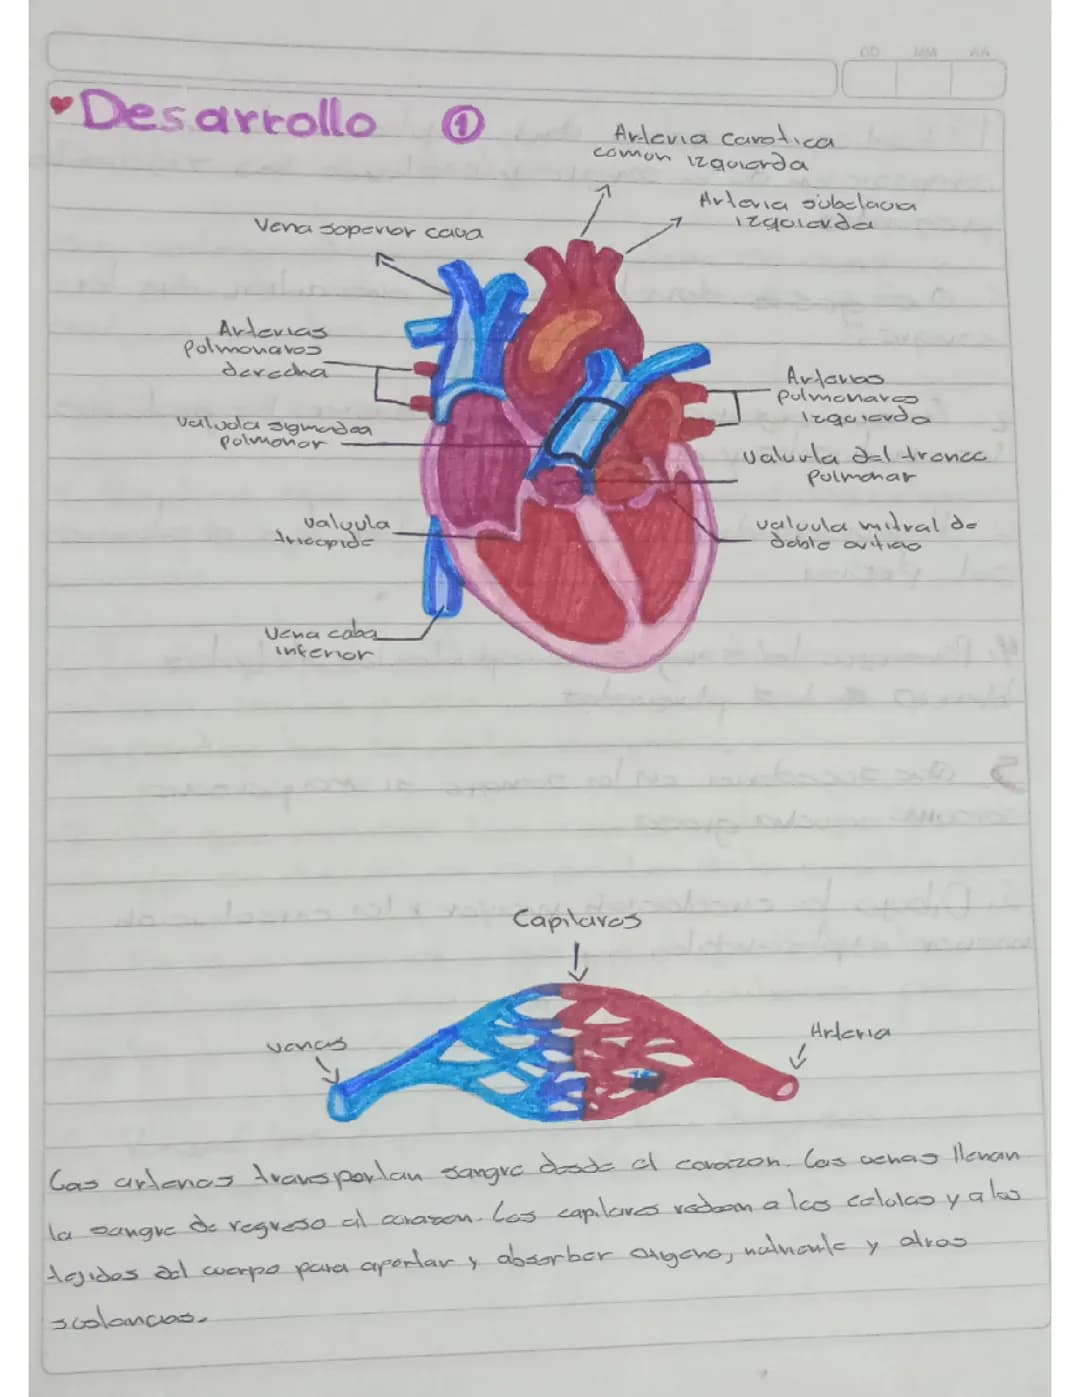 DD MM AA
Desarrollo ①
Arteria carotica
comun izquierda
Arteria subclavia
izquierda
Vena soperior cava
Arterias
Pulmonares
derecha
Arterias
pulmonares
izquierda
valvola sigmodea
polmonar
valvula del tronco
Pulmonar
valvula
tricopide
valvula mitral de
doble orificio
Vena caba
inferior
Capilares
venas
Arteria
Las arterias transportan sangre desde el corazon. Las venas llenan
la sangre de regreso al corazon. Los capilares rodean a las celulas y a los
tejidos del cuerpo para aportar y absorber oxigeno, nutriente y otras
sustancias.